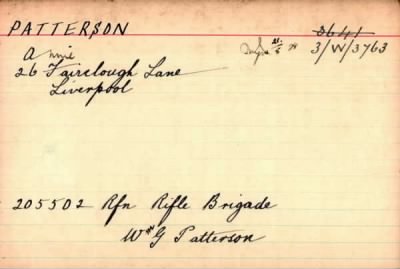 PATTERSON
3641
Annie
21/6
3/W/3763
26 Fairclough Lane
Liverpool
205502 Rfn Rifle Brigade
Wm G Patterson